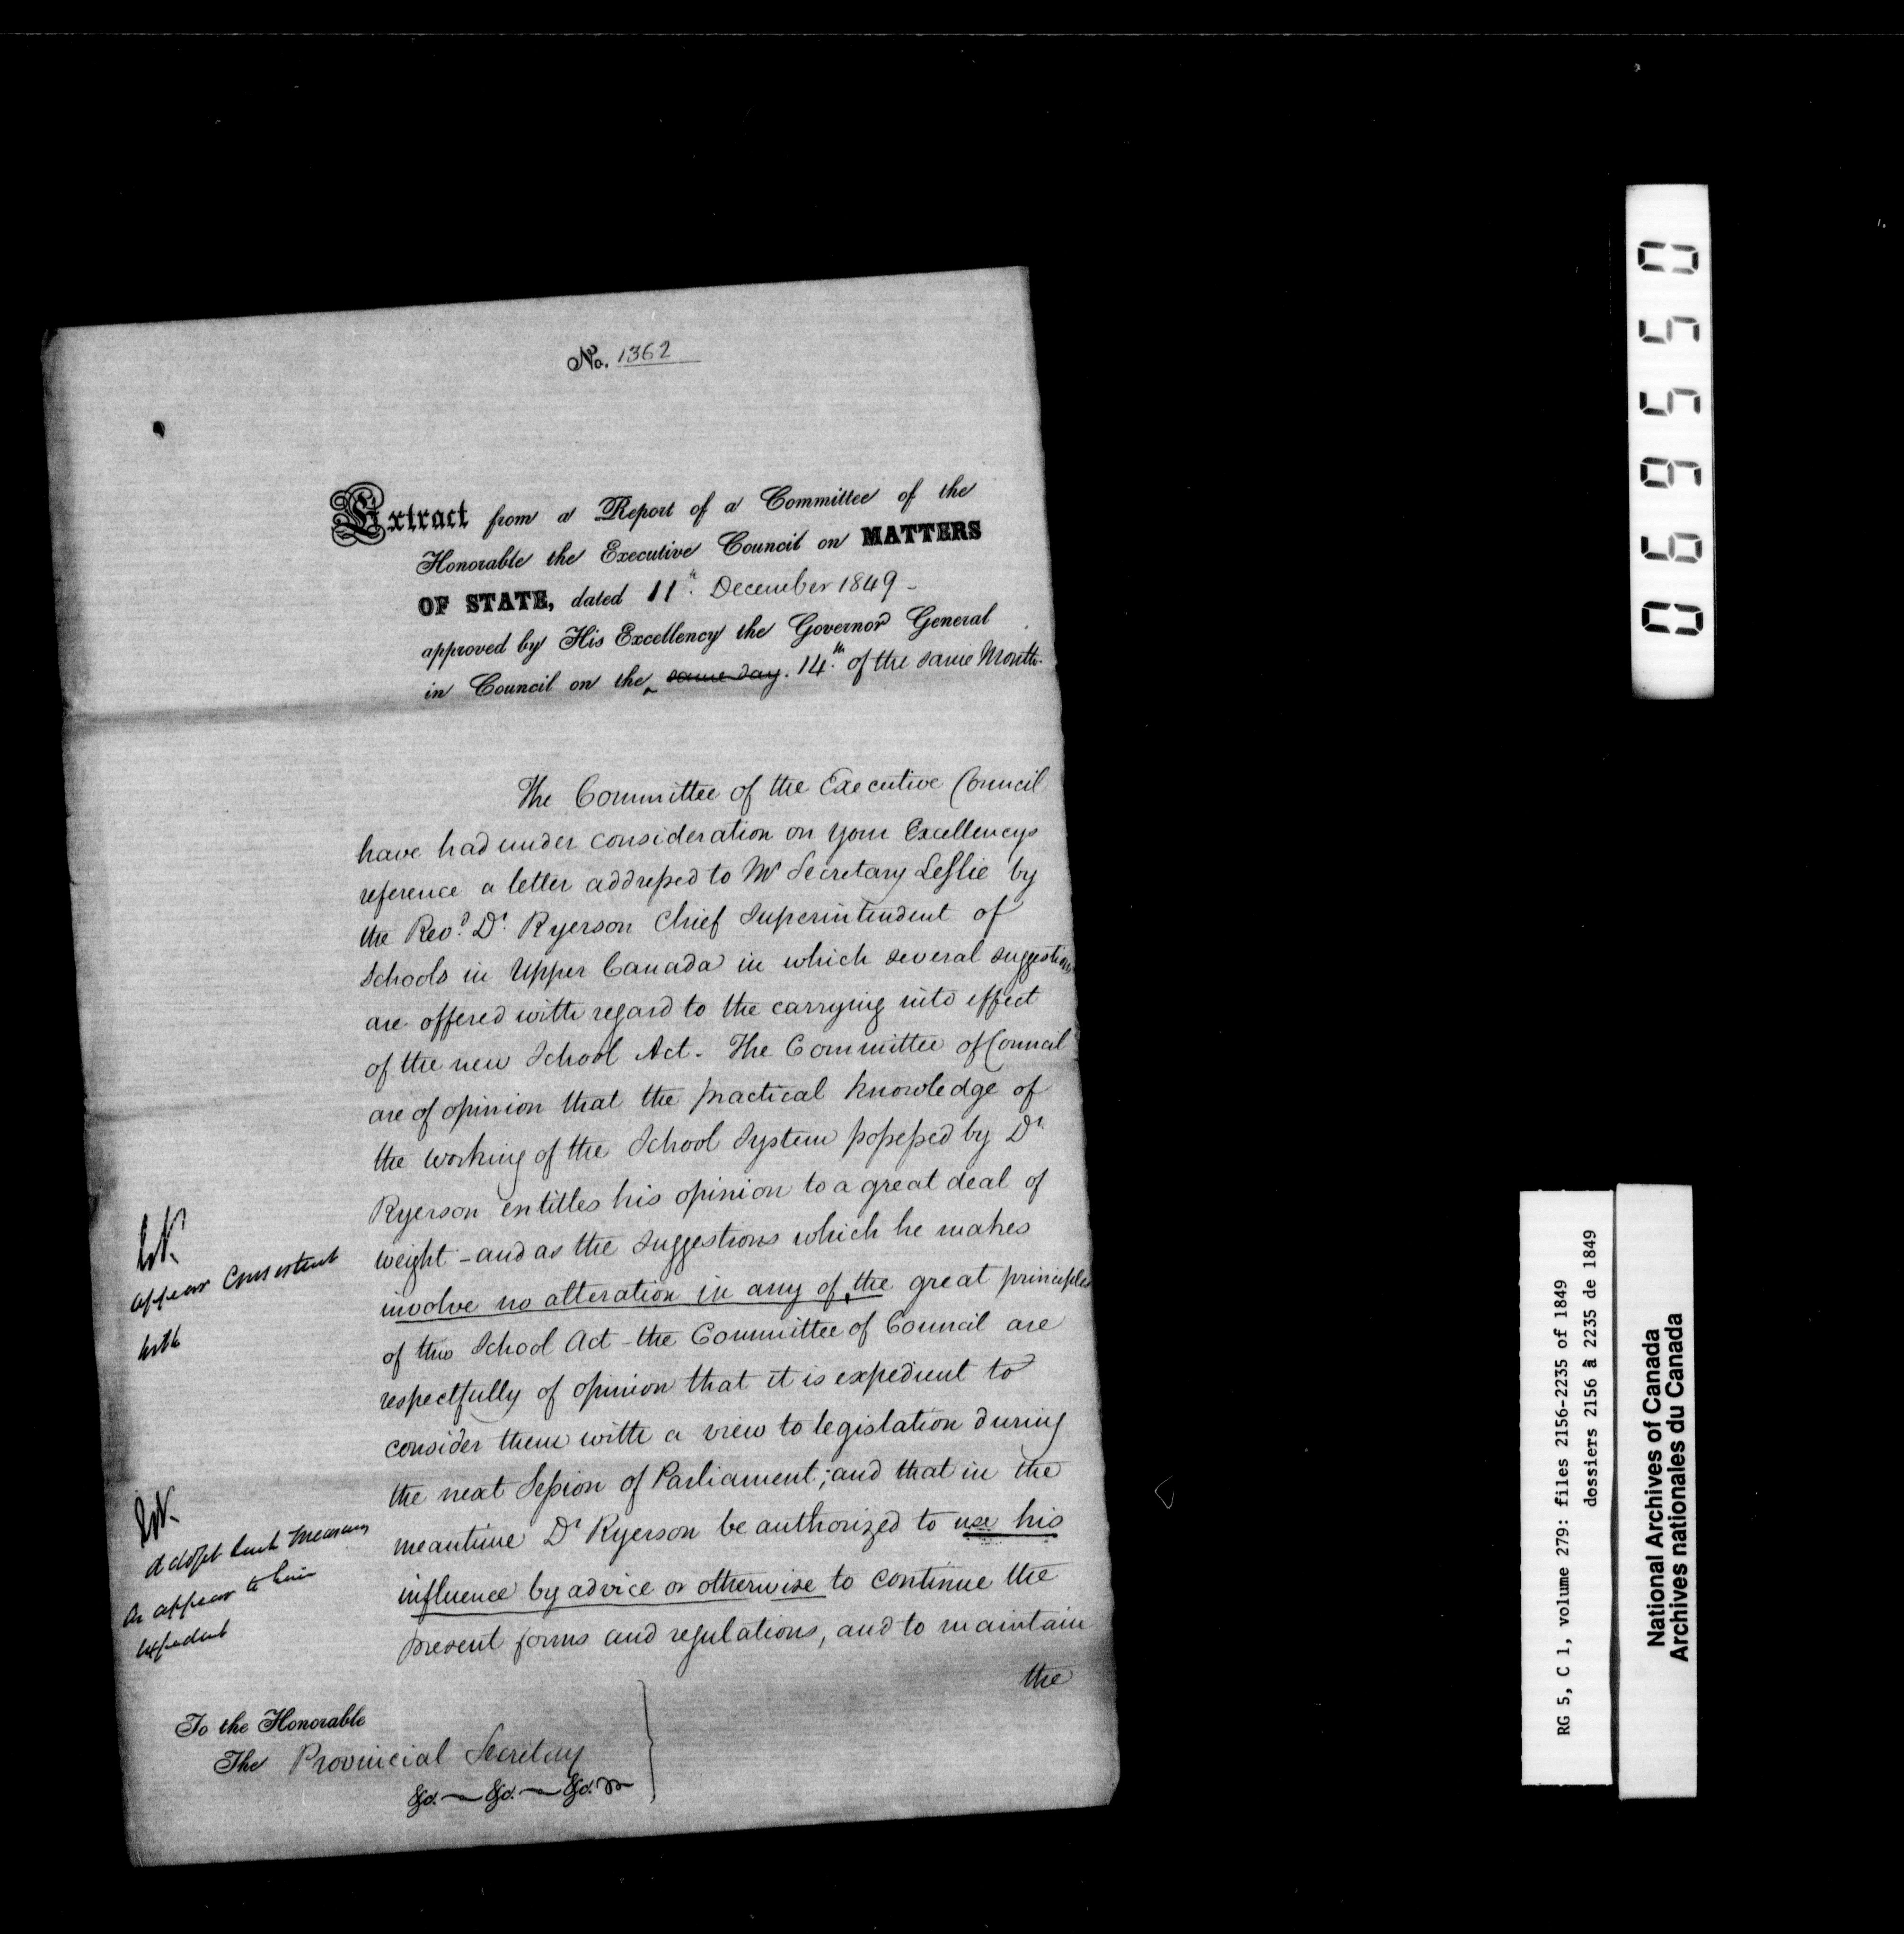 No. 1362
Extract from a Report of a Committee of the
Honorable the Executive Council on MATTERS
OF STATE, dated 11th. December 1849 -
approved by His Excellency the Governor General
in Council on the same day. 14th. of the same Month.
The Committee of the Executive Council
have had under consideration on your Excellencys
reference a letter addressed to Mr Secretary Leslie by
the Revd. Dr. Ryerson Chief Superintendent of
Schools in Upper Canada in which several suggestions
are offered with regard to the carrying into effect
of the new School Act. The Committee of Council
are of opinion that the practical knowledge of
the working of the School System possessed by Dr.
Ryerson entitles his opinion to a great deal of
weight - and as the suggestions which he makes
involve no alteration in any of the great principles
of this School Act - the Committee of Council are
respectfully of opinion that it is expedient to
consider them with a view to legislation during
the next Session of Parliament; and that in the
meantime Dr Ryerson be authorized to use his
influence by advice or otherwise to continue the
present forms and regulations, and to maintain
the
appear Consistent
with
adopt such measures
as appear to him
expedient
To the Honorable
The Provincial Secretary
&c. &c. &c.
069550
RG 5, C 1, volume 279: files 2156-2235 of 1849
dossiers 2156 à 2235 de 1849
National Archives of Canada
Archives nationales du Canada